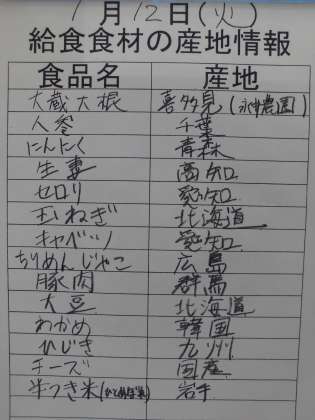 1月12日(火)
給食食材の産地情報
食品名 産地
大蔵大根 喜多見(永井農園)
人参 千葉
にんにく 青森
生姜 高知
セロリ 愛知
玉ねぎ 北海道
キャベツ 愛知
ちりめんじゃこ 広島
豚肉 群馬
大豆 北海道
わかめ 韓国
ひじき 九州
チーズ 国産
半つき米 岩手